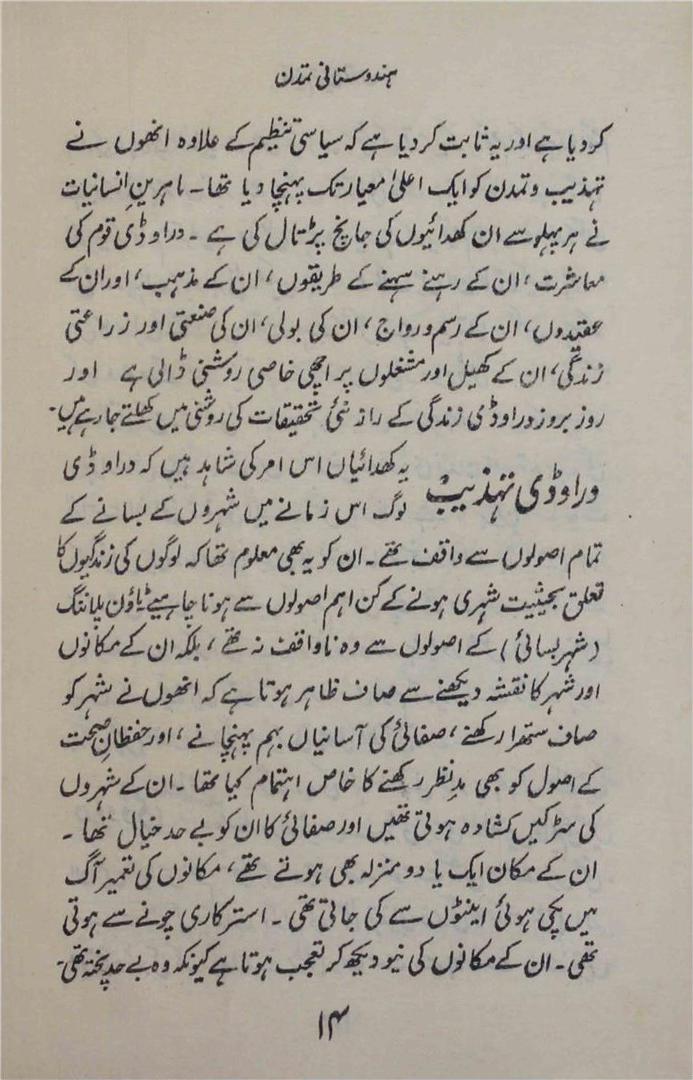 ہندوستانی تمدن
کر دیا ہے اور یہ ثابت کر دیا ہے کہ سیاسی تنظیم کے علاوہ انھوں نے
تہذیب و تمدن کو ایک اعلیٰ معیار تک پہنچا دیا تھا۔ ماہرینِ انسانیات
نے ہر پہلو سے ان کھدائیوں کی جانچ پڑتال کی ہے ۔ دراوڈی قوم کی
معاشرت، ان کے رہنے سہنے کے طریقوں، ان کے مذہب، اور ان کے
عقیدوں، ان کے رسم و رواج، ان کی بولی، ان کی صنعتی اور زراعتی
زندگی، ان کے کھیل اور مشغلوں پر اچھی خاصی روشنی ڈالی ہے اور
روز بروز دراوڈی زندگی کے راز نئی تحقیقات کی روشنی میں کھلتے جا رہے ہیں۔
دراوڈی تہذیب یہ کھدائیاں اس امر کی شاہد ہیں کہ دراوڈی
لوگ اس زمانے میں شہروں کے بسانے کے
تمام اصولوں سے واقف تھے۔ ان کو یہ بھی معلوم تھا کہ لوگوں کی زندگیوں کا
تعلق بحیثیت شہری ہونے کے کن اہم اصولوں سے ہونا چاہیے ٹاؤن پلاننگ
(شہر بسائی) کے اصولوں سے وہ ناواقف نہ تھے، بلکہ ان کے مکانوں
اور شہر کا نقشہ دیکھنے سے صاف ظاہر ہوتا ہے کہ انھوں نے شہر کو
صاف ستھرا رکھنے، صفائی کی آسانیاں بہم پہنچانے، اور حفظانِ صحت
کے اصول کو بھی مدِنظر رکھنے کا خاص اہتمام کیا تھا ۔ ان کے شہروں
کی سڑکیں کشادہ ہوتی تھیں اور صفائی کا ان کو بے حد خیال تھا ۔
ان کے مکان ایک یا دو منزلہ بھی ہوتے تھے، مکانوں کی تعمیر آگ
میں پکی ہوئی اینٹوں سے کی جاتی تھی ۔ استرکاری چونے سے ہوتی
تھی ۔ ان کے مکانوں کی نیو دیکھ کر تعجب ہوتا ہے کیونکہ وہ بے حد پختہ تھی۔
۱۴